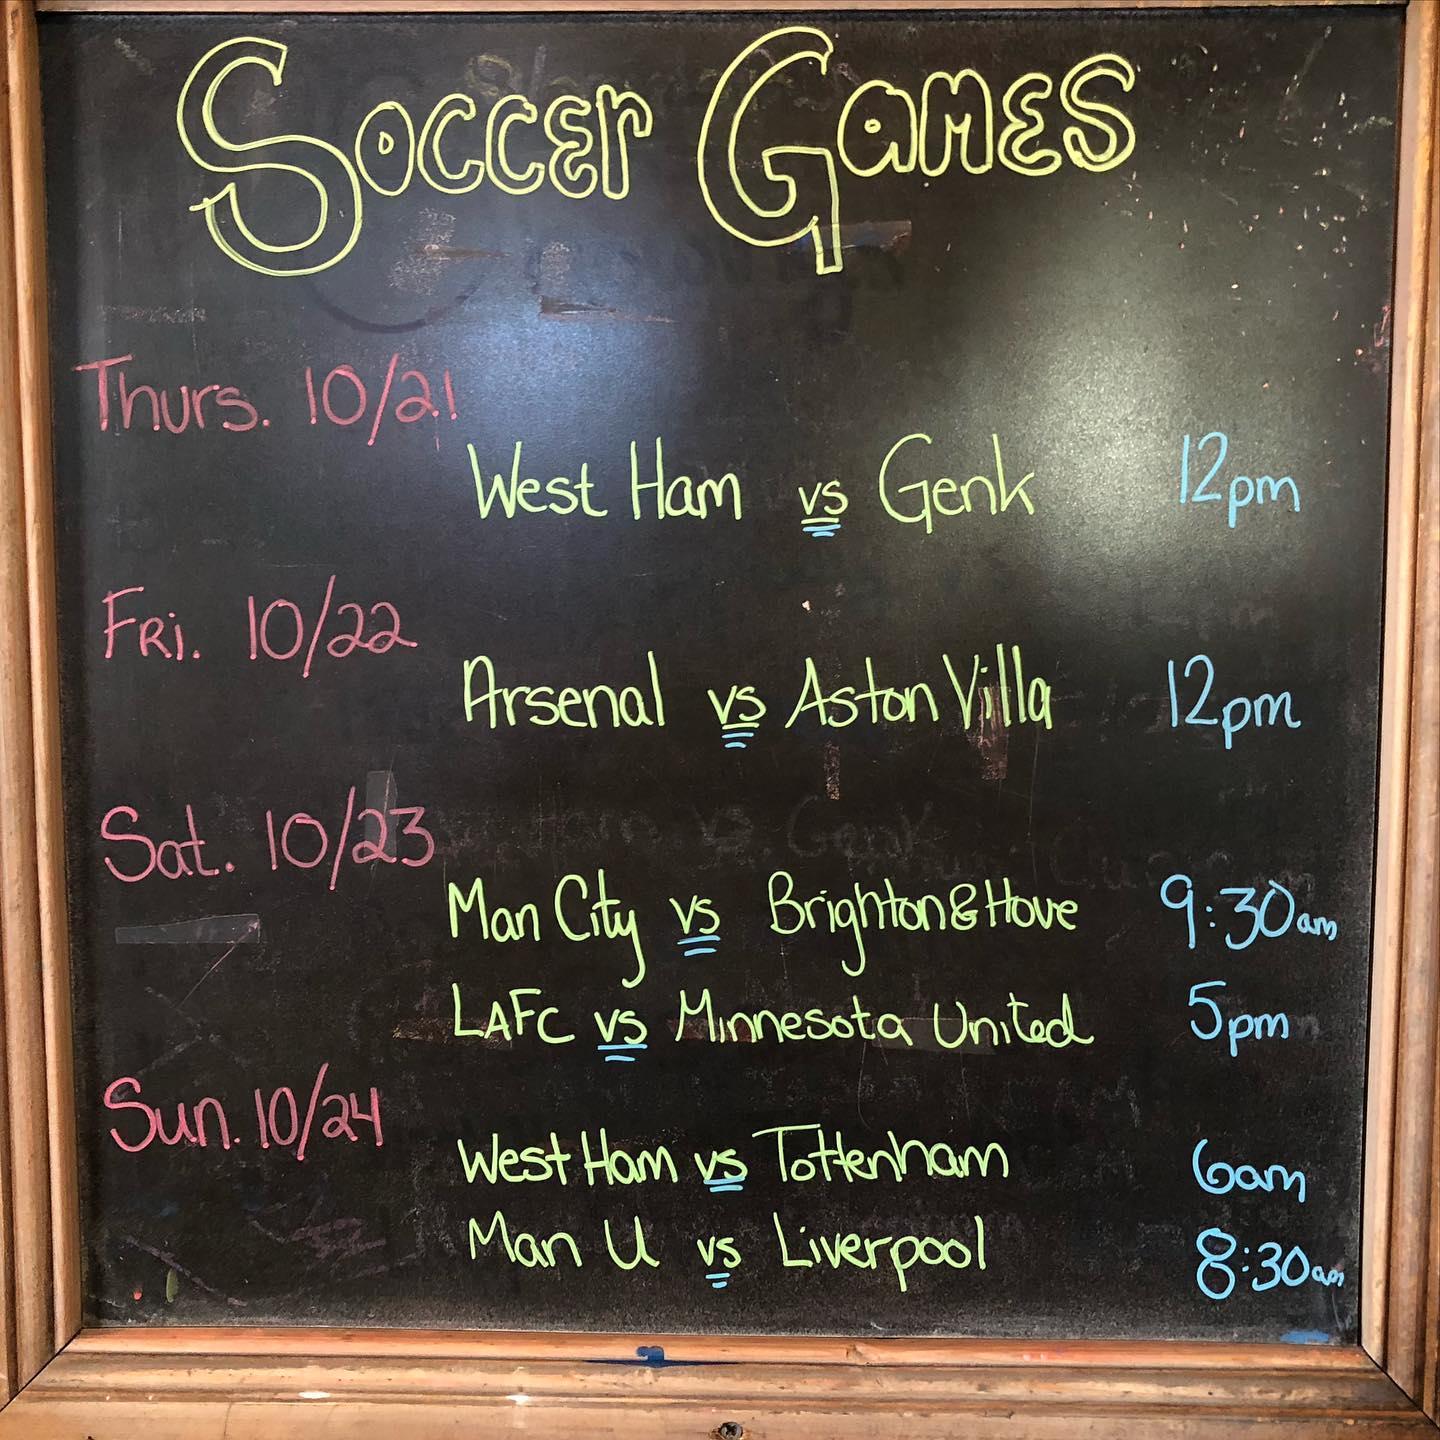 Soccer Games
Thurs. 10/21
West Ham vs Genk 12pm
Fri. 10/22
Arsenal vs Aston Villa 12pm
Sat. 10/23
Man City vs Brighton & Hove 9:30am
LAFC vs Minnesota United 5pm
Sun. 10/24
West Ham vs Tottenham 6am
Man U vs Liverpool 8:30am